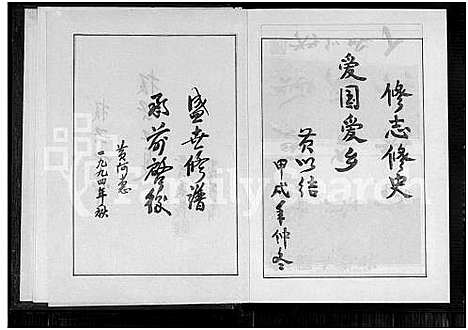 修志修史
爱国爱乡
黄以结
甲戌年仲冬
盛世修谱
承前启后
黄阿忠
一九九四年秋
FamilySearch